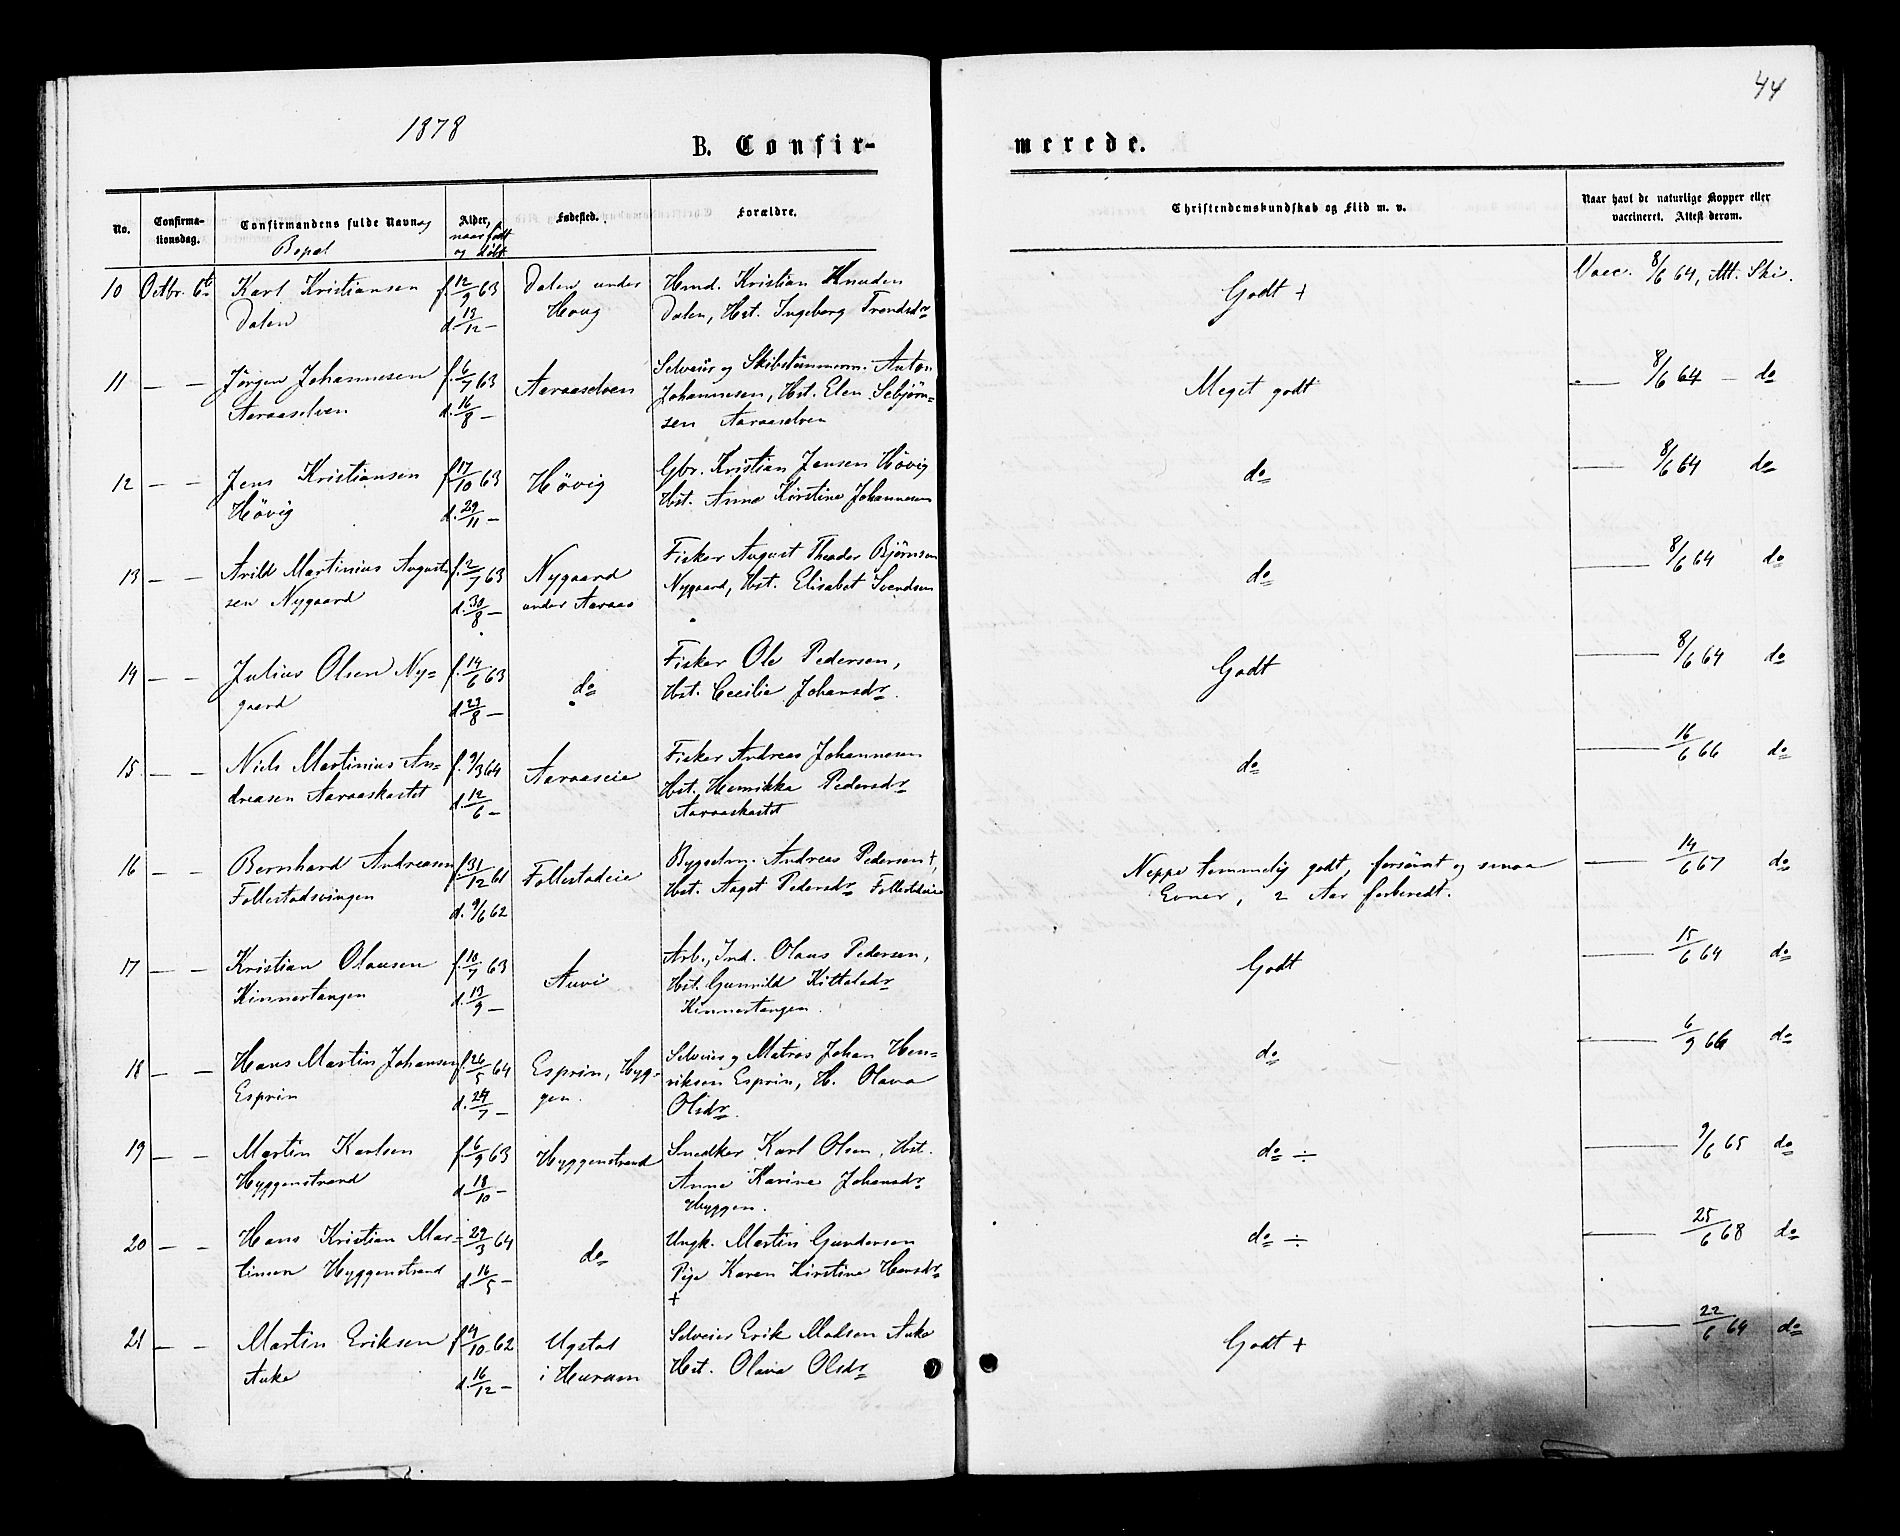 44
1878
B. Confir-
merede.
No.
Confirma-
tionsdag.
Confirmandens fulde Navn og
Bopæl
Alder,
naar født
og døbt
Fødested.
Forældre.
Christendomskundskab og Flid m. v.
Naar havt de naturlige Kopper eller
vaccineret. Attest derom.
10 Octbr. 6te Karl Kristiansen f. 12/9 63 Dalen under Hmd. Kristian Knudsen Godt + Vacc. 8/6 64, Att. Ski.
Dalen d. 13/12 — Houg Dalen, Hst. Ingeborg Trondsdr
11 — — Jörgen Johannesen f. 6/7 63 Aaraaselven Selveier og Skibstømmerm. Anton Meget godt — 8/6 64 — do
Aaraaselven d. 16/8 — Johannesen, Hst. Elen Sebjörn-
sen Aaraaselven
12 — — Jens Kristiansen f. 17/10 63 Hövig Gbr. Kristian Jensen Hövig do — 8/6 64 do
Hövig d. 29/11 — Hst. Anne Kirstine Johannesen
13 — — Arild Martinius August- f. 2/7 63 Nygaard Fisker August Theodor Bjørnsen do — 8/6 64 do
sen Nygaard d. 30/8 — under Aaraas Nygaard, Hst. Elisabet Svendsen
14 — — Julius Olsen Ny- f. 14/6 63 do Fisker Ole Pedersen, Godt — 8/6 64 do
gaard d. 23/8 — Hst. Cecilie Johansdr.
15 — — Niels Martinius An- f. 9/3 64 Aaraaseie Fisker Andreas Johannesen do — 16/6 66 do
dreasen Aaraaskastet d. 12/6 — Hst. Henrikka Pedersdr
Aaraaskastet
16 — — Bernhard Andreasen f. 31/12 61 Follestadeie Bygselm. Andreas Pedersen +, Neppe temmelig godt, forsømt og smaa — 14/6 67 do
Follestadsvingen d. 9/6 62 Hst. Aaget Pedersdr Follestadeie Evner, 2 Aar forberedt.
17 — — Kristian Olausen f. 10/7 63 Auvi Arb., Ind. Olaus Pedersen, Godt — 15/6 64 do
Kinnartangen d. 13/9 — Hst. Gunnild Kittelsdr
Kinnartangen.
18 — — Hans Martin Johansen f. 26/5 64 Esprin, Hyg- Selveier og Matros Johan Hen- do — 6/9 66 do
Esprin d. 24/7 — gen. riksen Esprin, H. Olava
Olsdr.
19 — — Martin Karlsen f. 6/9 63 Hyggenstrand Snedker Karl Olsen, Hst. do ÷ — 9/6 65 do
Hyggenstrand d. 18/10 — Anne Karine Johansdr
Hyggen.
20 — — Hans Kristian Mar- 29/3 64 do Ungk. Martin Gundersen do ÷ — 25/6 68 do
tinsen Hyggenstrand d. 16/5 — Pige Karen Kirstine Hansdr
+
21 — — Martin Eriksen f. 4/10 62 Ugstad Selveier Erik Madsen Auke Godt + — 22/6 64 do
Auke d. 16/12 — i Hurum Hst. Olava Olsdr